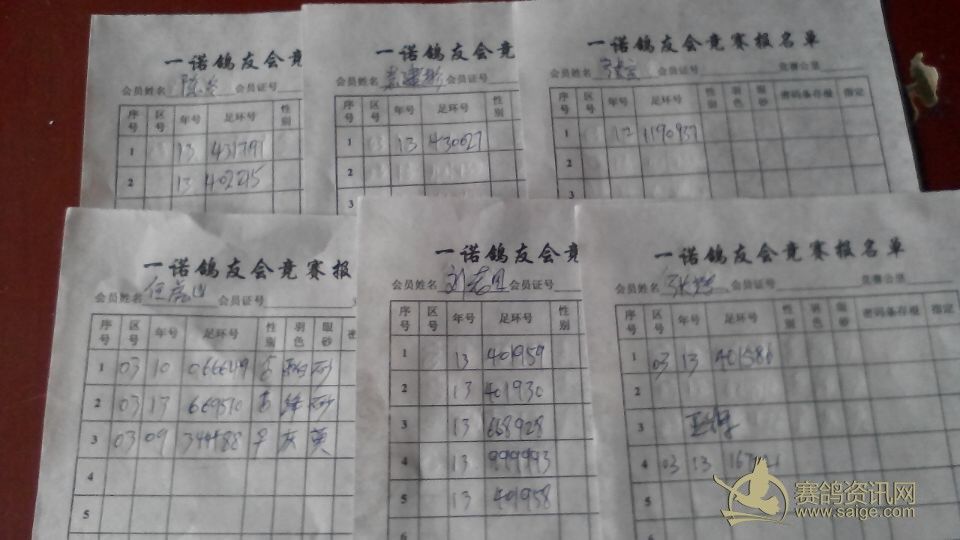 一诺鸽友会竞
会员姓名 会员证号
序号 区号 年号 足环号 性别
1 13 431791
2 13 402215
一诺鸽友会竞
会员姓名 会员证号
序号 区号 年号 足环号
1 03 13 430027
2
3
一诺鸽友会竞赛报名单
会员姓名 会员证号 竞赛公里
序号 区号 年号 足环号 性别 羽色 眼砂 密码条存根 指定
1 12 1190937
2
3
一诺鸽友会竞赛报
会员姓名 会员证号
序号 区号 年号 足环号 性别 羽色 眼砂
1 03 10 066649 砂
2 03 13 669510 绛 砂
3 03 09 344488 灰 黄
4
5
一诺鸽友会竞
会员姓名 会员证号
序号 区号 年号 足环号 性别
1 13 401959
2 13 401930
3 13 668928
4 13 999993
5 13 401958
一诺鸽友会竞赛报名单
会员姓名 会员证号 竞赛公里
序号 区号 年号 足环号 性别 羽色 眼砂 密码条存根 指定
1 03 13 401586
3
4 03 13
5
6
赛鸽资讯网
www.saige.com